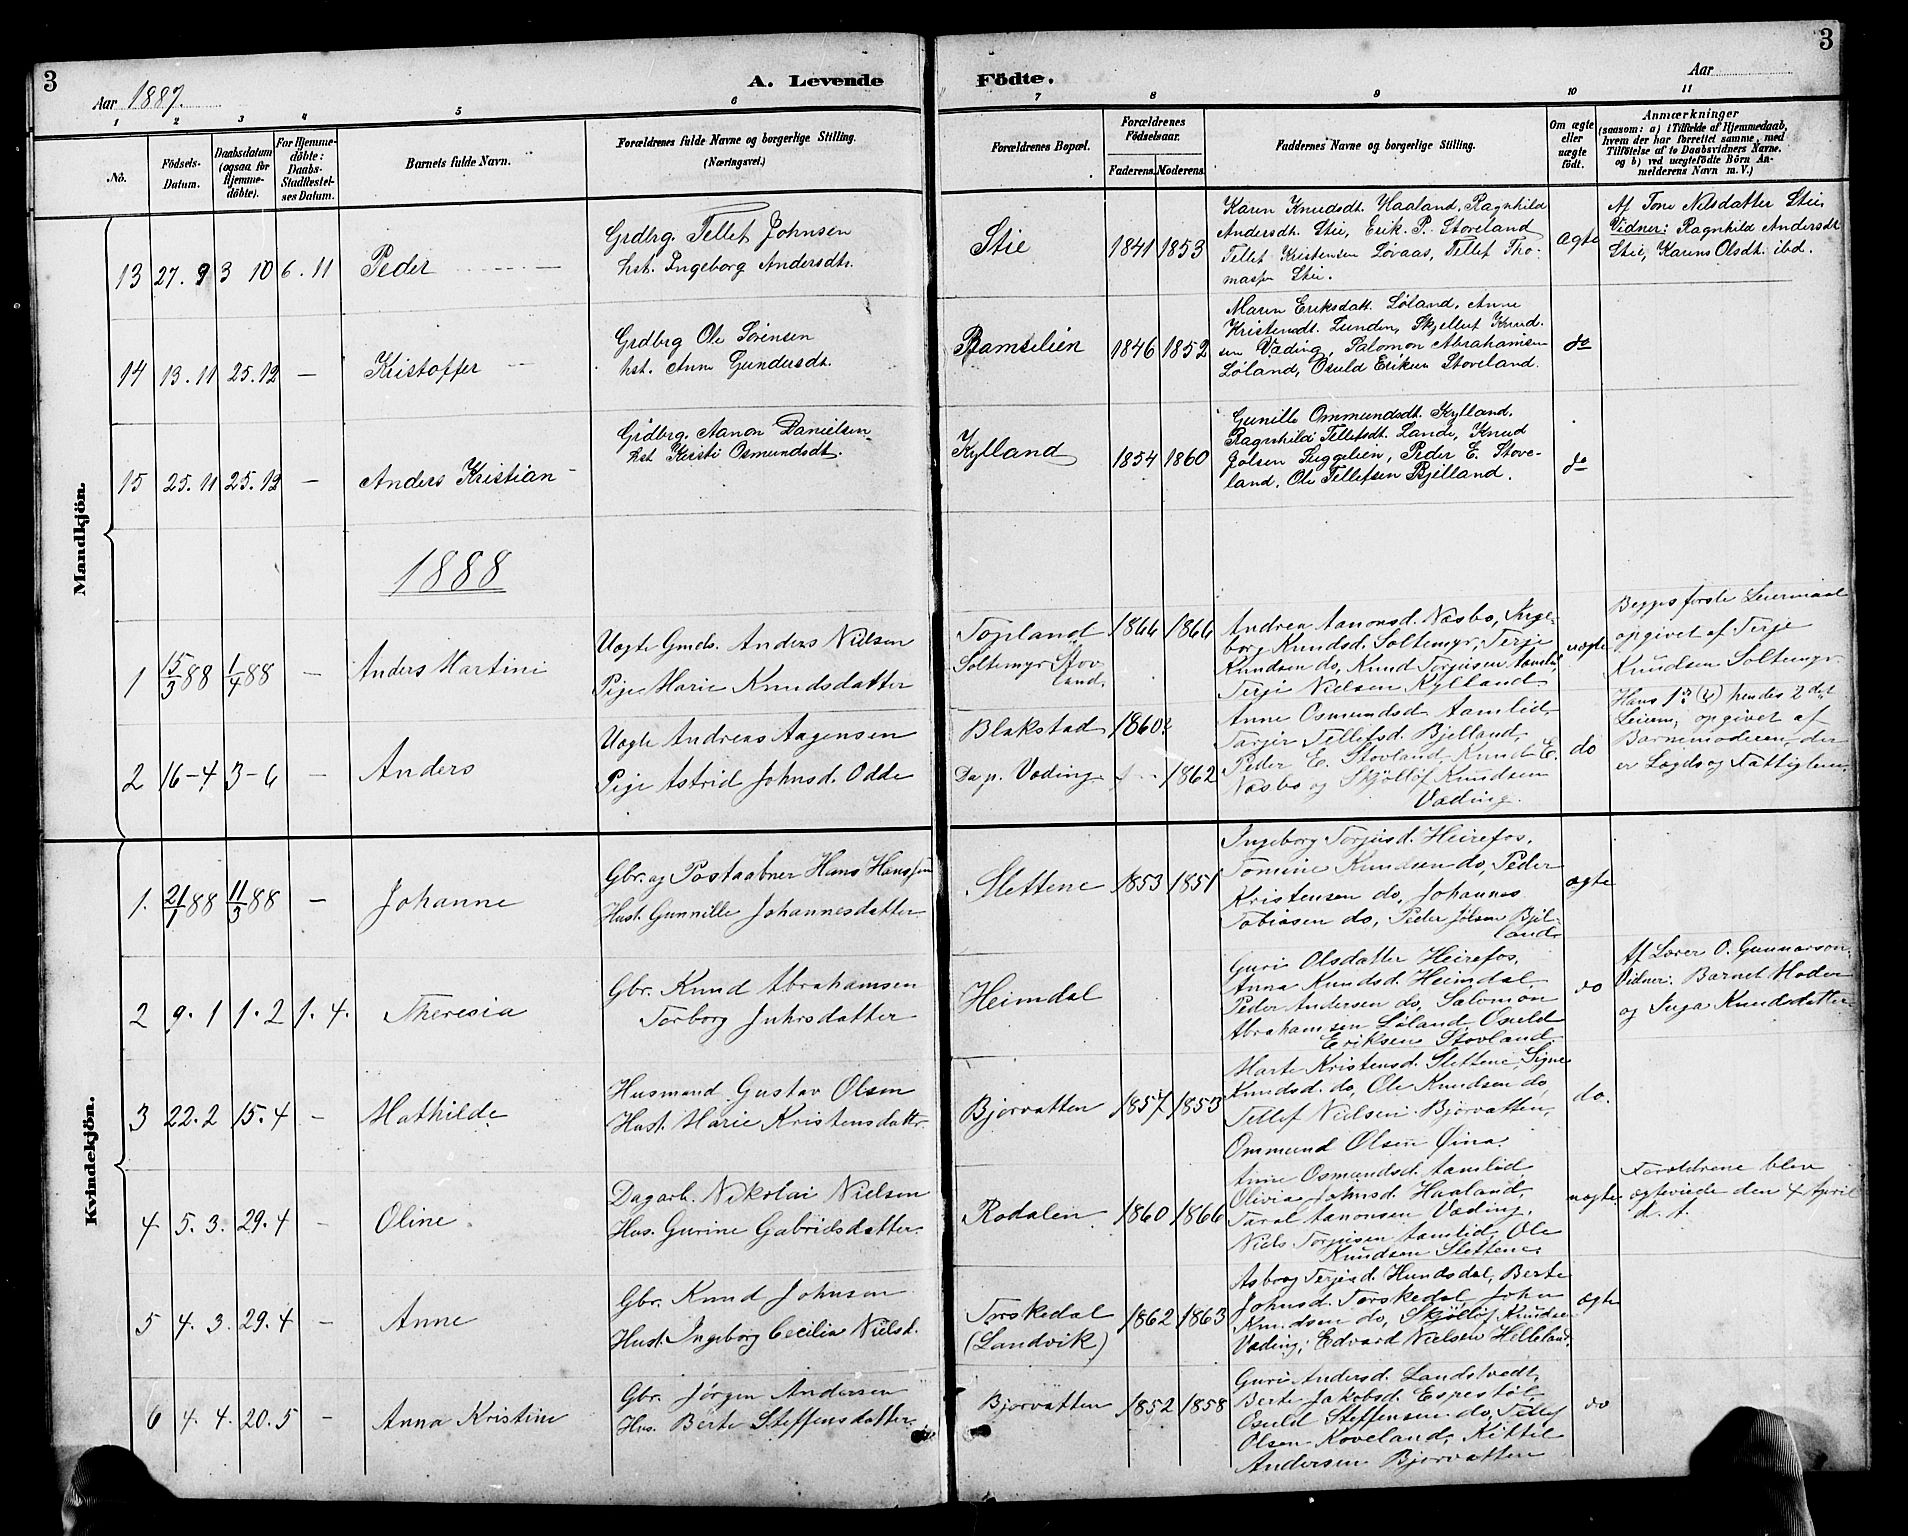 3
A. Levende Födte.
3
Aar 1887.
Aar
1 2 3 4 5 6 7 8 9 10 11
No.
Födsels-Datum.
Daabsdatum (ogsaa for Hjemme-döbte).
For Hjemme-döbte: Daabs-Stadfæstel-ses Datum.
Barnets fulde Navn.
Forældrenes fulde Navne og borgerlige Stilling. (Næringsvei.)
Forældrenes Bopæl.
Forældrenes Födselsaar.
Faderens. Moderens.
Faddernes Navne og borgerlige Stilling.
Om ægte eller uægte födt.
Anmærkninger
(saasom: a) i Tilfælde af Hjemmedaab, hvem der har forrettet samme, med Tilföielse af to Daabsvidners Navne. og b) ved uægtefödte Börn An-melderens Navn m. V.)
Mandkjön.
13 27. 9 3 10 6. 11 Peder
Grdbrg. Tellef Johnsen
hst. Ingeborg Andersdt.
Stie 1841 1853
Karen Knudsdt. Haaland, Ragnhild
Andersdt. Stie, Erik P. Stoveland
Tellef Kristensen Løvaas, Tellef Tho-
massen Stie.
ægte
Af Tone Nilsdatter Stie,
Vidner: Ragnhild Andersdt
Stie, Karens Olsdt. ibd.
14 13. 11 25. 12 — Kristoffer
Grdbrg Ole Sørensen
hst. Anne Gundersdt.
Ramselien 1846 1852
Maren Eriksdatt. Løland, Anne
Kristensdt. Lunden, Skjellut Knud-
sen Væding, Salomon Abrahamsen
Løland, Osuld Eriksen Stoveland.
do
15 25. 11 25. 12 — Anders Kristian
Grdbrg. Aanon Danielsen
hst Kirsti Osmundsdt.
Kylland 1854 1860
Gunille Ommundsdt. Kylland.
Ragnhild Tellefsdt. Lande, Knud
Jølsen Suggelien, Peder E. Stove-
land. Ole Tellefsen Bjelland.
do
1888
1 15/3 88 1/4 88 — Anders Martini
Uægte Gmds. Anders Nielsen
Pige Marie Knudsdatter
Topland
Soltemyr Stov
land.
1866 1866
Andrea Aanonsd. Næsbo, Inge-
borg Knudsd. Soltemyr, Terje
Knudsen do, Knud Torjusen Aamlid
Terje Nielsen Kylland
uægte
Begges første Leiermaal
opgivet af Terje
Knudsen Soltemyr.
2 16-4 3-6 — Anders
Uægte Andreas Aagensen
Pige Astrid Johnsd. Odde
Blakstad 1860?
Da p. Væding 1862
Anne Osmundsd. Aamlid,
Tarjer Tellefsd. Bjelland,
Peder E. Stovland Knud E.
Næsbo og Skjølløf Knudsen
Væding.
do
Hans 1ste (?) hendes 2det
Leierm, opgivet af
Barnemoderen, der
er Lægds og Fattiglem.
Kvindekjön.
1. 21/1 88 11/3 88 — Johanne
Gbr. og Postaabner Hans Hanssen
Hust. Gunnille Johannesdatter
Slettene 1853 1851
Ingeborg Torjusd. Heirefos,
Tomine Knudsen do, Peder
Kristensen do, Johannes
Tobiasen do, Peder Jølsen Bjel-
land.
ægte
2 9. 1 1. 2 1. 4. Theresia
Gbr. Knud Abrahamsen
Torborg Juhrsdatter
Heimdal
Guri Olsdatter Heirefos,
Anna Knudsd. Heimdal,
Peder Andersen do, Salomon
Abrahamsen Løland, Osuld
Eriksen Stovland
do
Af Lærer O. Gunnarson.
Vidner: Barnet Moder
og Inga Knudsdatter
3 22. 2 15. 4 — Mathilde
Husmand Gustav Olsen
Hust. Marie Kristensdatter
Bjorvatten 1857 1853
Marte Kristensd. Slettene, Signe
Knudsd. do, Ole Knudsen do,
Tellef Nielsen Bjorvatten,
Ommund Olsen Øina.
do.
4 5. 3. 29. 4 — Oline
Dagarb. Nikolai Nielsen
Hus. Gurine Gabrielsdatter
Rodalen 1860 1866
Anne Osmundsd. Aamlid
Olivia Johnsd. Haaland,
Taral Aanonsen Væding,
Niels Torjusen Aamlid, Ole
Knudsen Slettene.
uægte
Forældrene blev
ægteviede den 4 April
d. A.
5 4. 3. 29. 4 — Anne
Gbr. Knud Johnsen
Hust. Ingeborg Cecilia Nielsd.
Torskedal
(Landvik)
1862 1863
Asborg Terjesd. Hundsdal, Berte
Johnsd. Torskedal, John
Knudsen do, Skjølløf Knudsen
Væding, Edvard Nielsen Hilleland.
ægte
6 4. 4. 20. 5 — Anna Kristine
Gbr. Jørgen Andersen
Hus. Berte Steffensdatter
Bjorvatten 1852 1858
Guri Andersd. Landstvedt,
Berte Jakobsd. Espestøl,
Osuld Steffensen do, Tellef
Olsen Koveland, Kittil
Andersen Bjorvatten
do